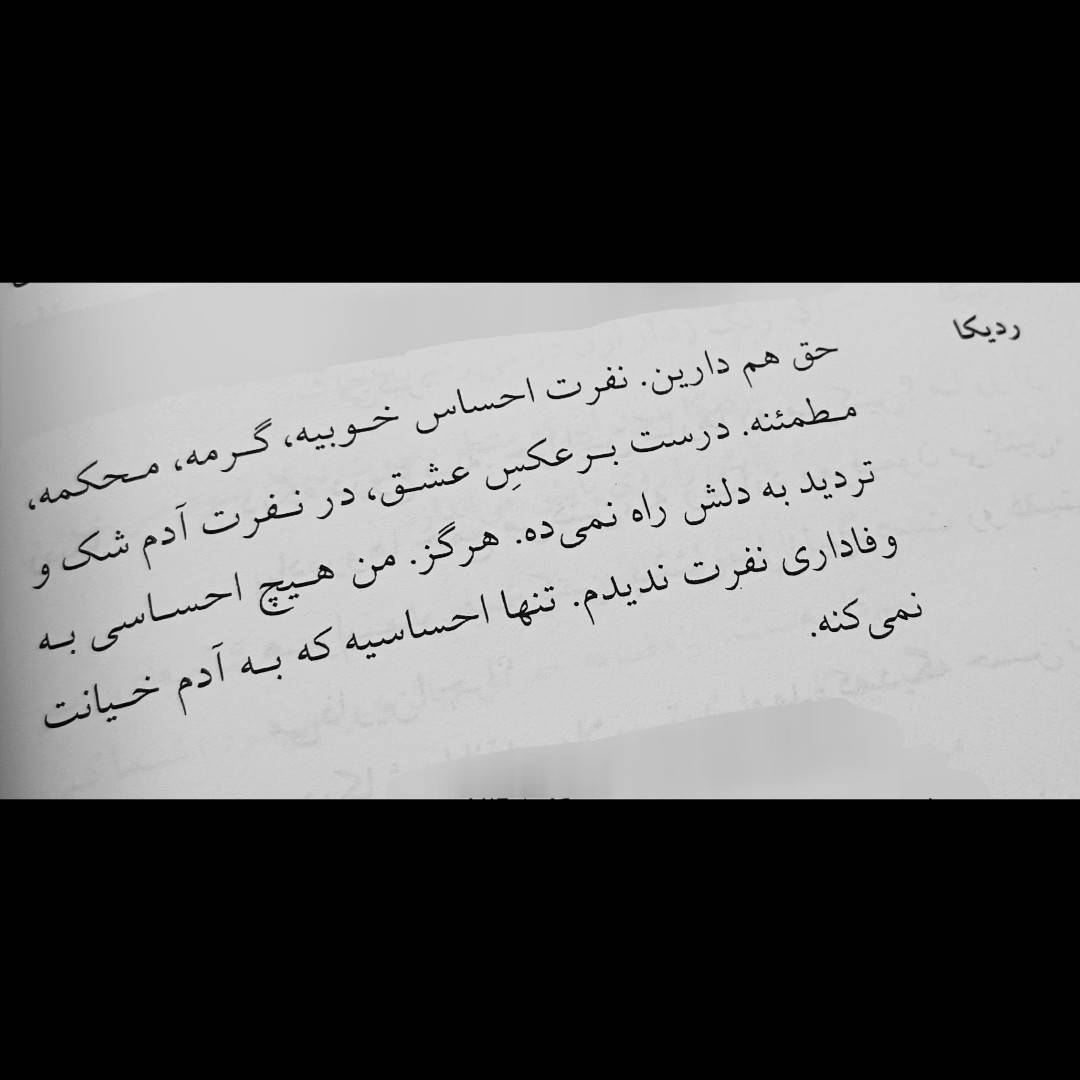 ردیکا
حق هم دارین. نفرت احساس خوبیه، گرمه، محکمه،
مطمئنه. درست برعکسِ عشق، در نفرت آدم شک و
تردید به دلش راه نمی‌ده. هرگز. من هیچ احساسی به
وفاداری نفرت ندیدم. تنها احساسیه که به آدم خیانت
نمی‌کنه.